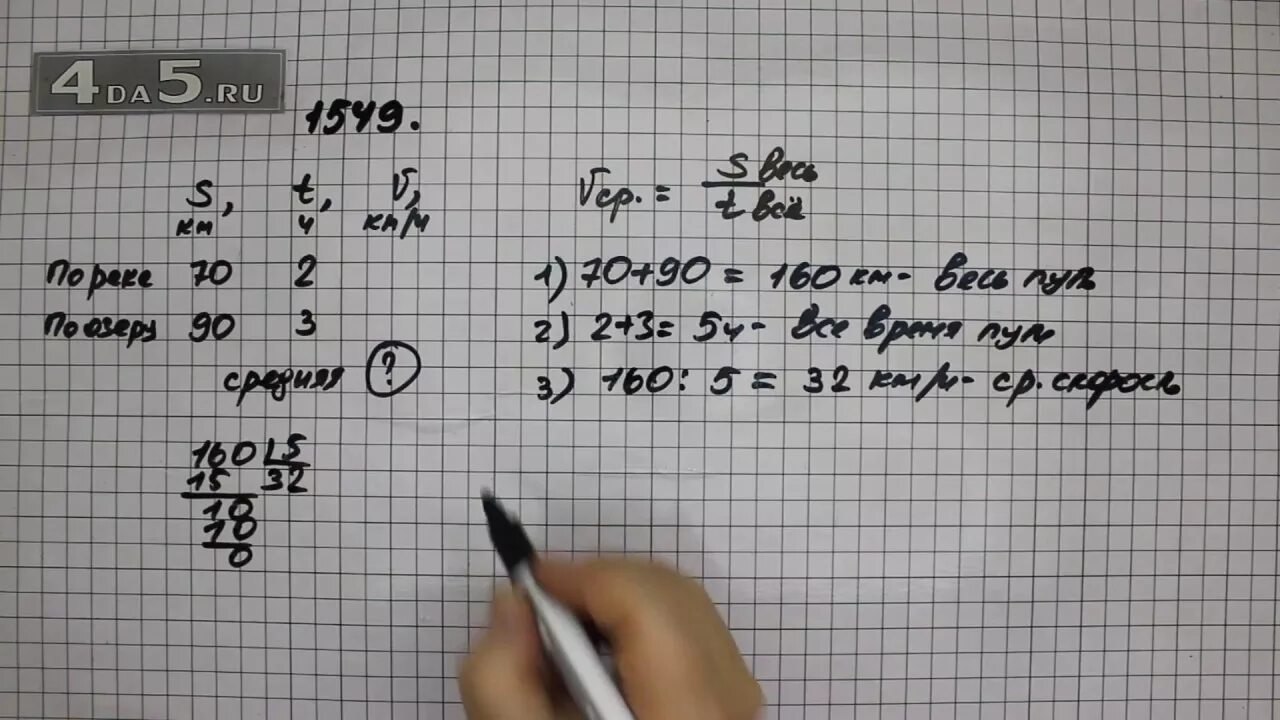 4DA5.RU
1549.
S, t, V,
км ч км/ч
По реке 70 2
По озеру 90 3
средняя ?
160 5
15 32
10
10
0
Vср. = S весь
t всё
1) 70+90 = 160 км - весь путь
2) 2+3 = 5ч - все время пути
3) 160 : 5 = 32 км/ч - ср. скорость